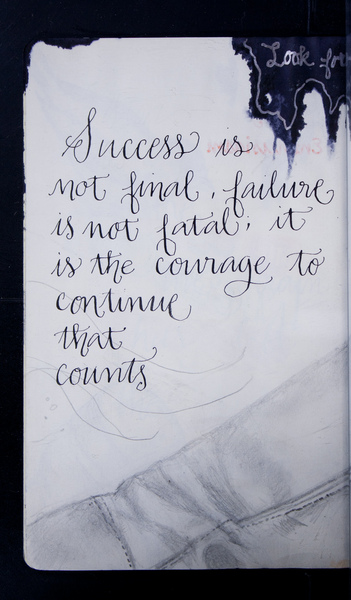 Look for
Success is
not final, failure
is not fatal; it
is the courage to
continue
that
counts